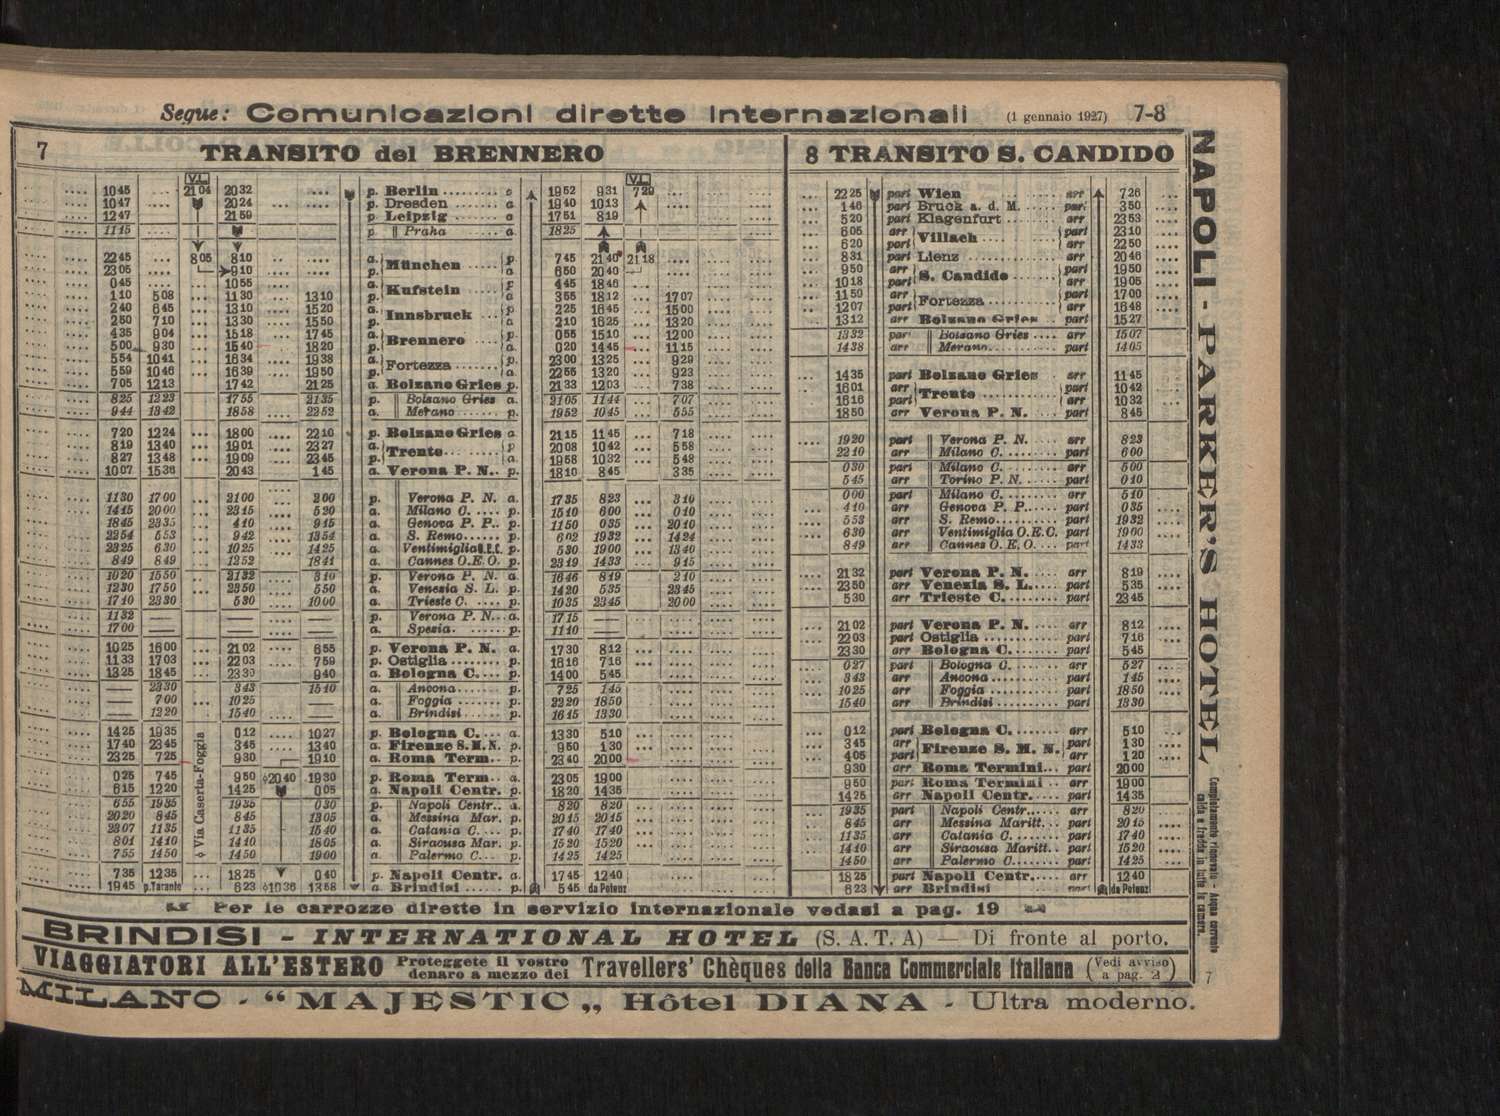 Segue: Comunicazioni dirette internazionali (1 gennaio 1927) 7-8
7 TRANSITO del BRENNERO
V.L. V.L.
1045 .... 2104 2032 .... p. Berlin a 1952 931 729
1047 .... 2024 p. Dresden a. 1940 1013
1247 .... 2159 p. Leipzig a 1751 819
1115 p. Praha a. 1825
2245 .... 805 810 a. München p 745 2140 2118
2305 .... 910 p. 650 2040
045 .... 1055 a. Kufstein p 445 1846
110 508 1130 1310 p. 355 1812 1707
240 645 1310 1520 a. Innsbruck 225 1645 1500
250 710 1330 1550 p. 210 1625 1320
435 904 1518 1745 a. Brennero 055 1510 1200
500 930 1540 1820 p. 020 1445 1115
554 1041 1634 1938 a. Fortezza 2300 1325 929
559 1046 1639 1950 p. 2255 1320 923
705 1213 1742 2125 a. Bolzano Gries p. 2133 1203 738
825 1223 1755 2135 p. Bolzano Gries a. 2105 1144 707
944 1342 1858 2252 a. Merano p. 1952 1045 555
720 1224 1800 2210 p. Bolzano Gries a 2115 1145 718
819 1340 1901 2327 a. Trento 2008 1042 558
827 1348 1909 2345 p. 1958 1032 548
1007 1536 2043 145 a. Verona P. N. p. 1810 845 335
1130 1700 2100 200 p. Verona P. N. a. 1735 823 310
1415 2000 2315 520 a. Milano C. p. 1510 600 010
1845 2335 410 915 a. Genova P. P. p. 1150 035 2010
2354 553 942 1354 a. S. Remo p. 602 1932 1424
2325 630 1025 1425 a. Ventimiglia O.E.C. p. 530 1900 1340
849 849 1252 1841 a. Cannes O.E.O. p. 2319 1433 915
1020 1550 2132 310 p. Verona P. N. a. 1646 819 210
1230 1750 2350 550 a. Venezia S. L. p. 1420 535 2345
1710 2330 530 1000 a. Trieste C. p. 1035 2345 2000
1132 —— p. Verona P. N. a. 1715 ——
1700 —— a. Spezia p. 1110 ——
1025 1600 2102 655 p. Verona P. N. a 1730 812
1133 1703 2203 759 p. Ostiglia p. 1616 716
1325 1845 2330 940 a. Bologna C. p. 1400 545
—— 2330 343 1510 a. Ancona p. 725 145
—— 700 1025 —— a. Foggia p. 2220 1850
—— 1220 1540 —— a. Brindisi p. 1615 1330
1425 1935 012 1027 p. Bologna C. a. 1330 510
1740 2345 345 1340 a. Firenze S.M.N. p. 950 130
2325 725 930 1910 a. Roma Term. p. 2340 2000
025 745 950 ◊2040 1930 p. Roma Term. a. 2305 1900
615 1220 1425 005 a. Napoli Centr. p. 1820 1435
655 1935 1935 030 p. Napoli Centr. a 820 820
2020 845 845 1305 a. Messina Mar. p. 2015 2015
2307 1135 1135 1540 a. Catania C. p. 1740 1740
801 1410 1410 1805 a. Siracusa Mar. p. 1520 1520
755 1450 1450 1900 a. Palermo C. p. 1425 1425
735 1235 1825 040 p. Napoli Centr. a. 1745 1240
1945 p.Taranto 623 ◊1036 1358 a. Brindisi p. 545 da Potenz
◊ Via Caserta-Foggia
8 TRANSITO S. CANDIDO
2225 part Wien arr 726
146 part Bruck a. d. M. part 350
520 part Klagenfurt arr 2353
605 arr Villach part 2310
620 part arr 2250
831 part Lienz arr 2046
950 arr S. Candido part 1950
1018 part arr 1905
1159 arr Fortezza part 1700
1207 part arr 1648
1312 arr Bolzano Gries part 1527
1332 par Bolzano Gries arr 1507
1438 arr Merano part 1405
1435 part Bolzano Gries arr 1145
1601 arr Trento part 1042
1616 part arr 1032
1850 arr Verona P. N. part 845
1920 part Verona P. N. arr 823
2210 arr Milano C. part 600
030 part Milano C. arr 500
545 arr Torino P. N. part 010
000 part Milano C. arr 510
410 arr Genova P. P. part 035
553 arr S. Remo part 1932
630 arr Ventimiglia O.E.C. part 1900
849 arr Cannes O.E.O. part 1433
2132 part Verona P. N. arr 819
2350 arr Venezia S. L. part 535
530 arr Trieste C. part 2345
2102 part Verona P. N. arr 812
2203 part Ostiglia part 716
2330 arr Bologna C. part 545
027 part Bologna C. arr 527
343 arr Ancona part 145
1025 arr Foggia part 1850
1540 arr Brindisi part 1330
012 part Bologna C. arr 510
345 arr Firenze S. M. N. part 130
405 part arr 120
930 arr Roma Termini part 2000
950 part Roma Termini arr 1900
1425 arr Napoli Centr. part 1435
1935 part Napoli Centr. arr 820
845 arr Messina Maritt. part 2015
1135 arr Catania C. part 1740
1410 arr Siracusa Maritt. part 1520
1450 arr Palermo C. part 1425
1825 part Napoli Centr. arr 1240
623 arr Brindisi part da Potenz
Per le carrozze dirette in servizio internazionale vedasi a pag. 19
BRINDISI - INTERNATIONAL HOTEL (S. A. T. A) — Di fronte al porto.
VIAGGIATORI ALL'ESTERO Proteggete il vostro denaro a mezzo dei Travellers' Chèques della Banca Commerciale Italiana (Vedi avviso a pag. 2)
MILANO - “ MAJESTIC „ Hôtel DIANA - Ultra moderno.
NAPOLI - PARKER'S HOTEL Completamente rinnovato - Acqua corrente
calda e fredda in tutte le camere.
7